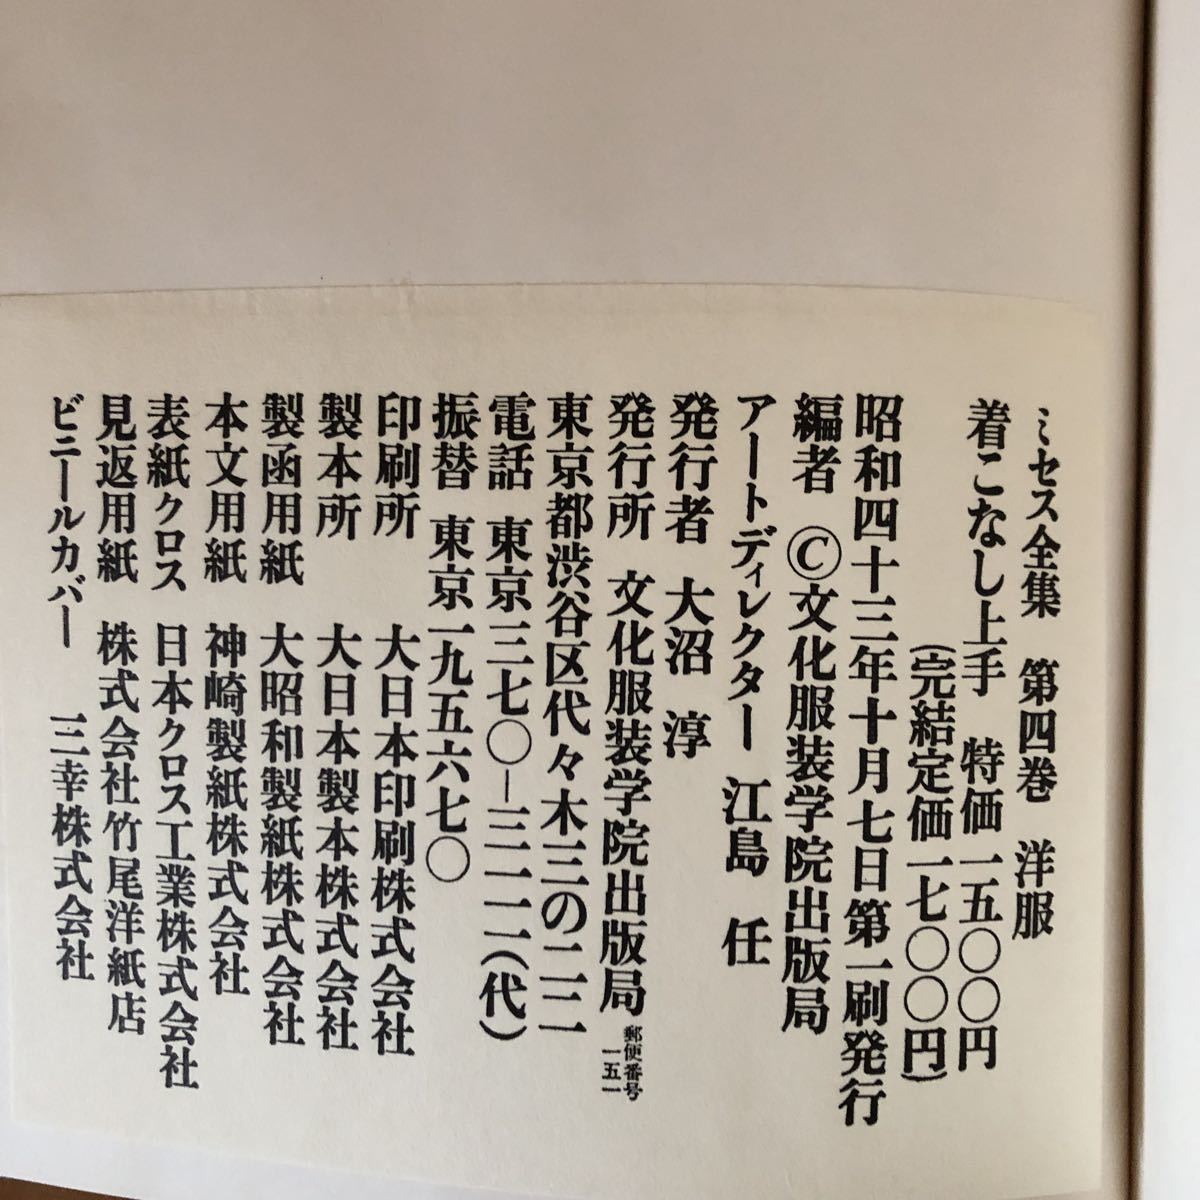 ミセス全集 第四巻 洋服
着こなし上手 特価一五〇〇円
(完結定価一七〇〇円)
昭和四十三年十月七日第一刷発行
編者 ©文化服装学院出版局
アートディレクター 江島 任
発行者 大沼 淳
発行所 文化服装学院出版局 郵便番号一五一
東京都渋谷区代々木三の二二
電話 東京三七〇−三一一一(代)
振替 東京一九五六七〇
印刷所 大日本印刷株式会社
製本所 大日本製本株式会社
製函用紙 大昭和製紙株式会社
本文用紙 神崎製紙株式会社
表紙クロス 日本クロス工業株式会社
見返用紙 株式会社竹尾洋紙店
ビニールカバー 三幸株式会社